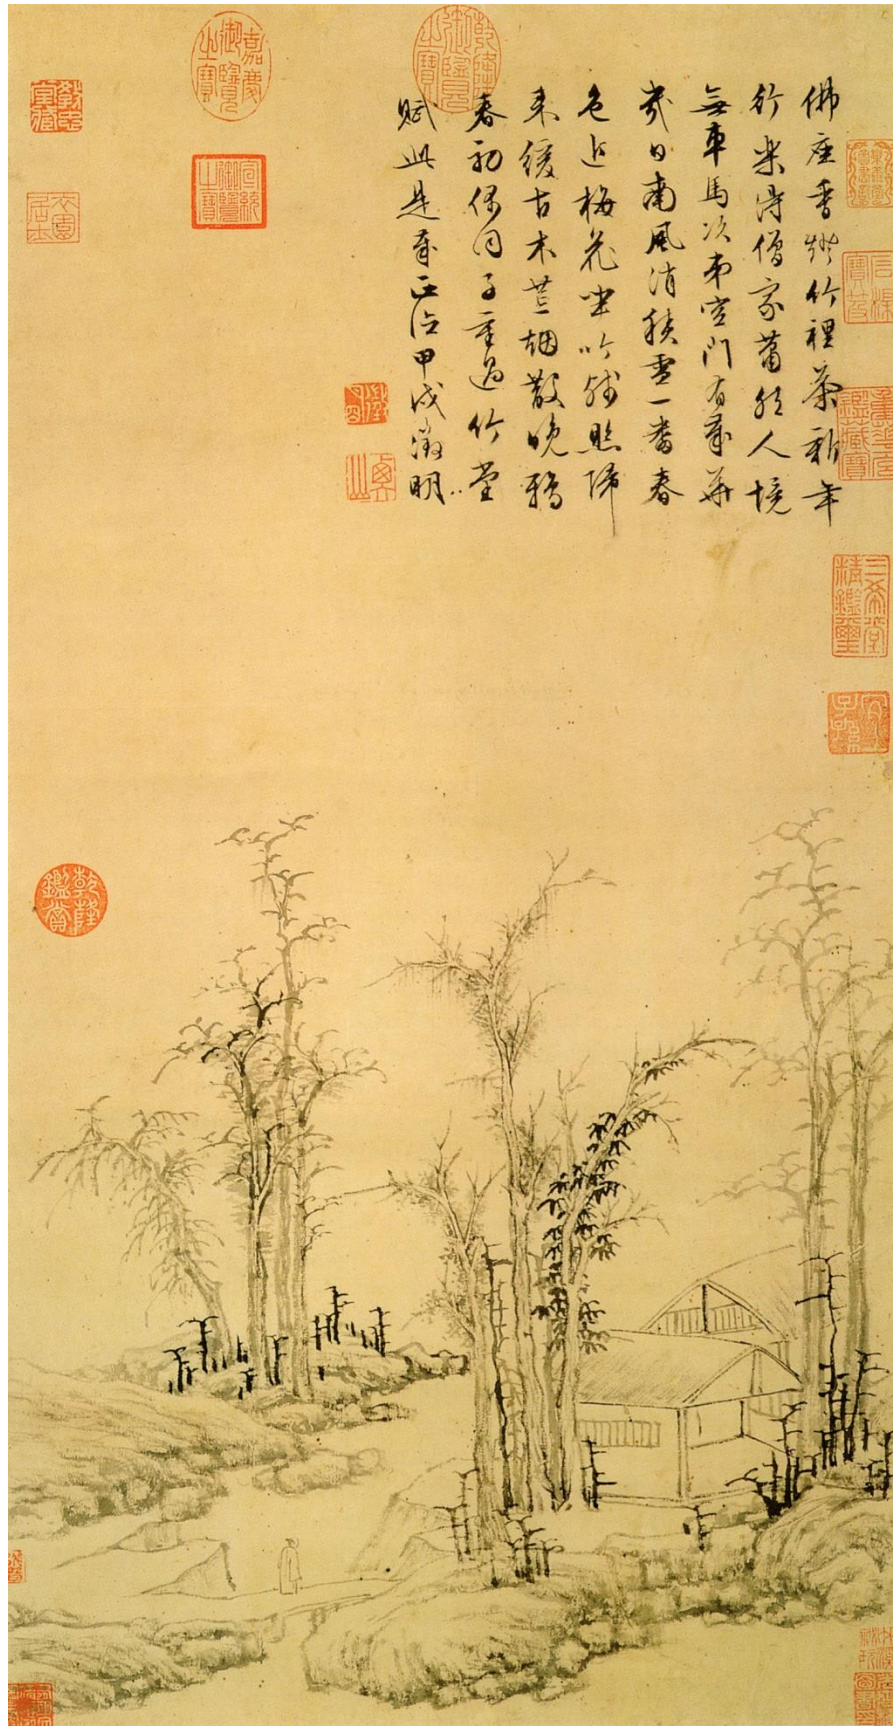 佛座香燈竹裡茶新年
行樂得僧家蕭然人境
無車馬次弟空門有歲華
幾日南風消積雪一番春
色近梅花坐吟殘照歸
來緩古木荒烟散晚鴉
春初偶同子重過竹堂
賦此是歲正德甲戌徵明
乾隆御覽之寶
嘉慶御覽之寶
宣統御覽之寶
石渠寶笈
三希堂精鑑璽
宜子孫
乾隆鑑賞